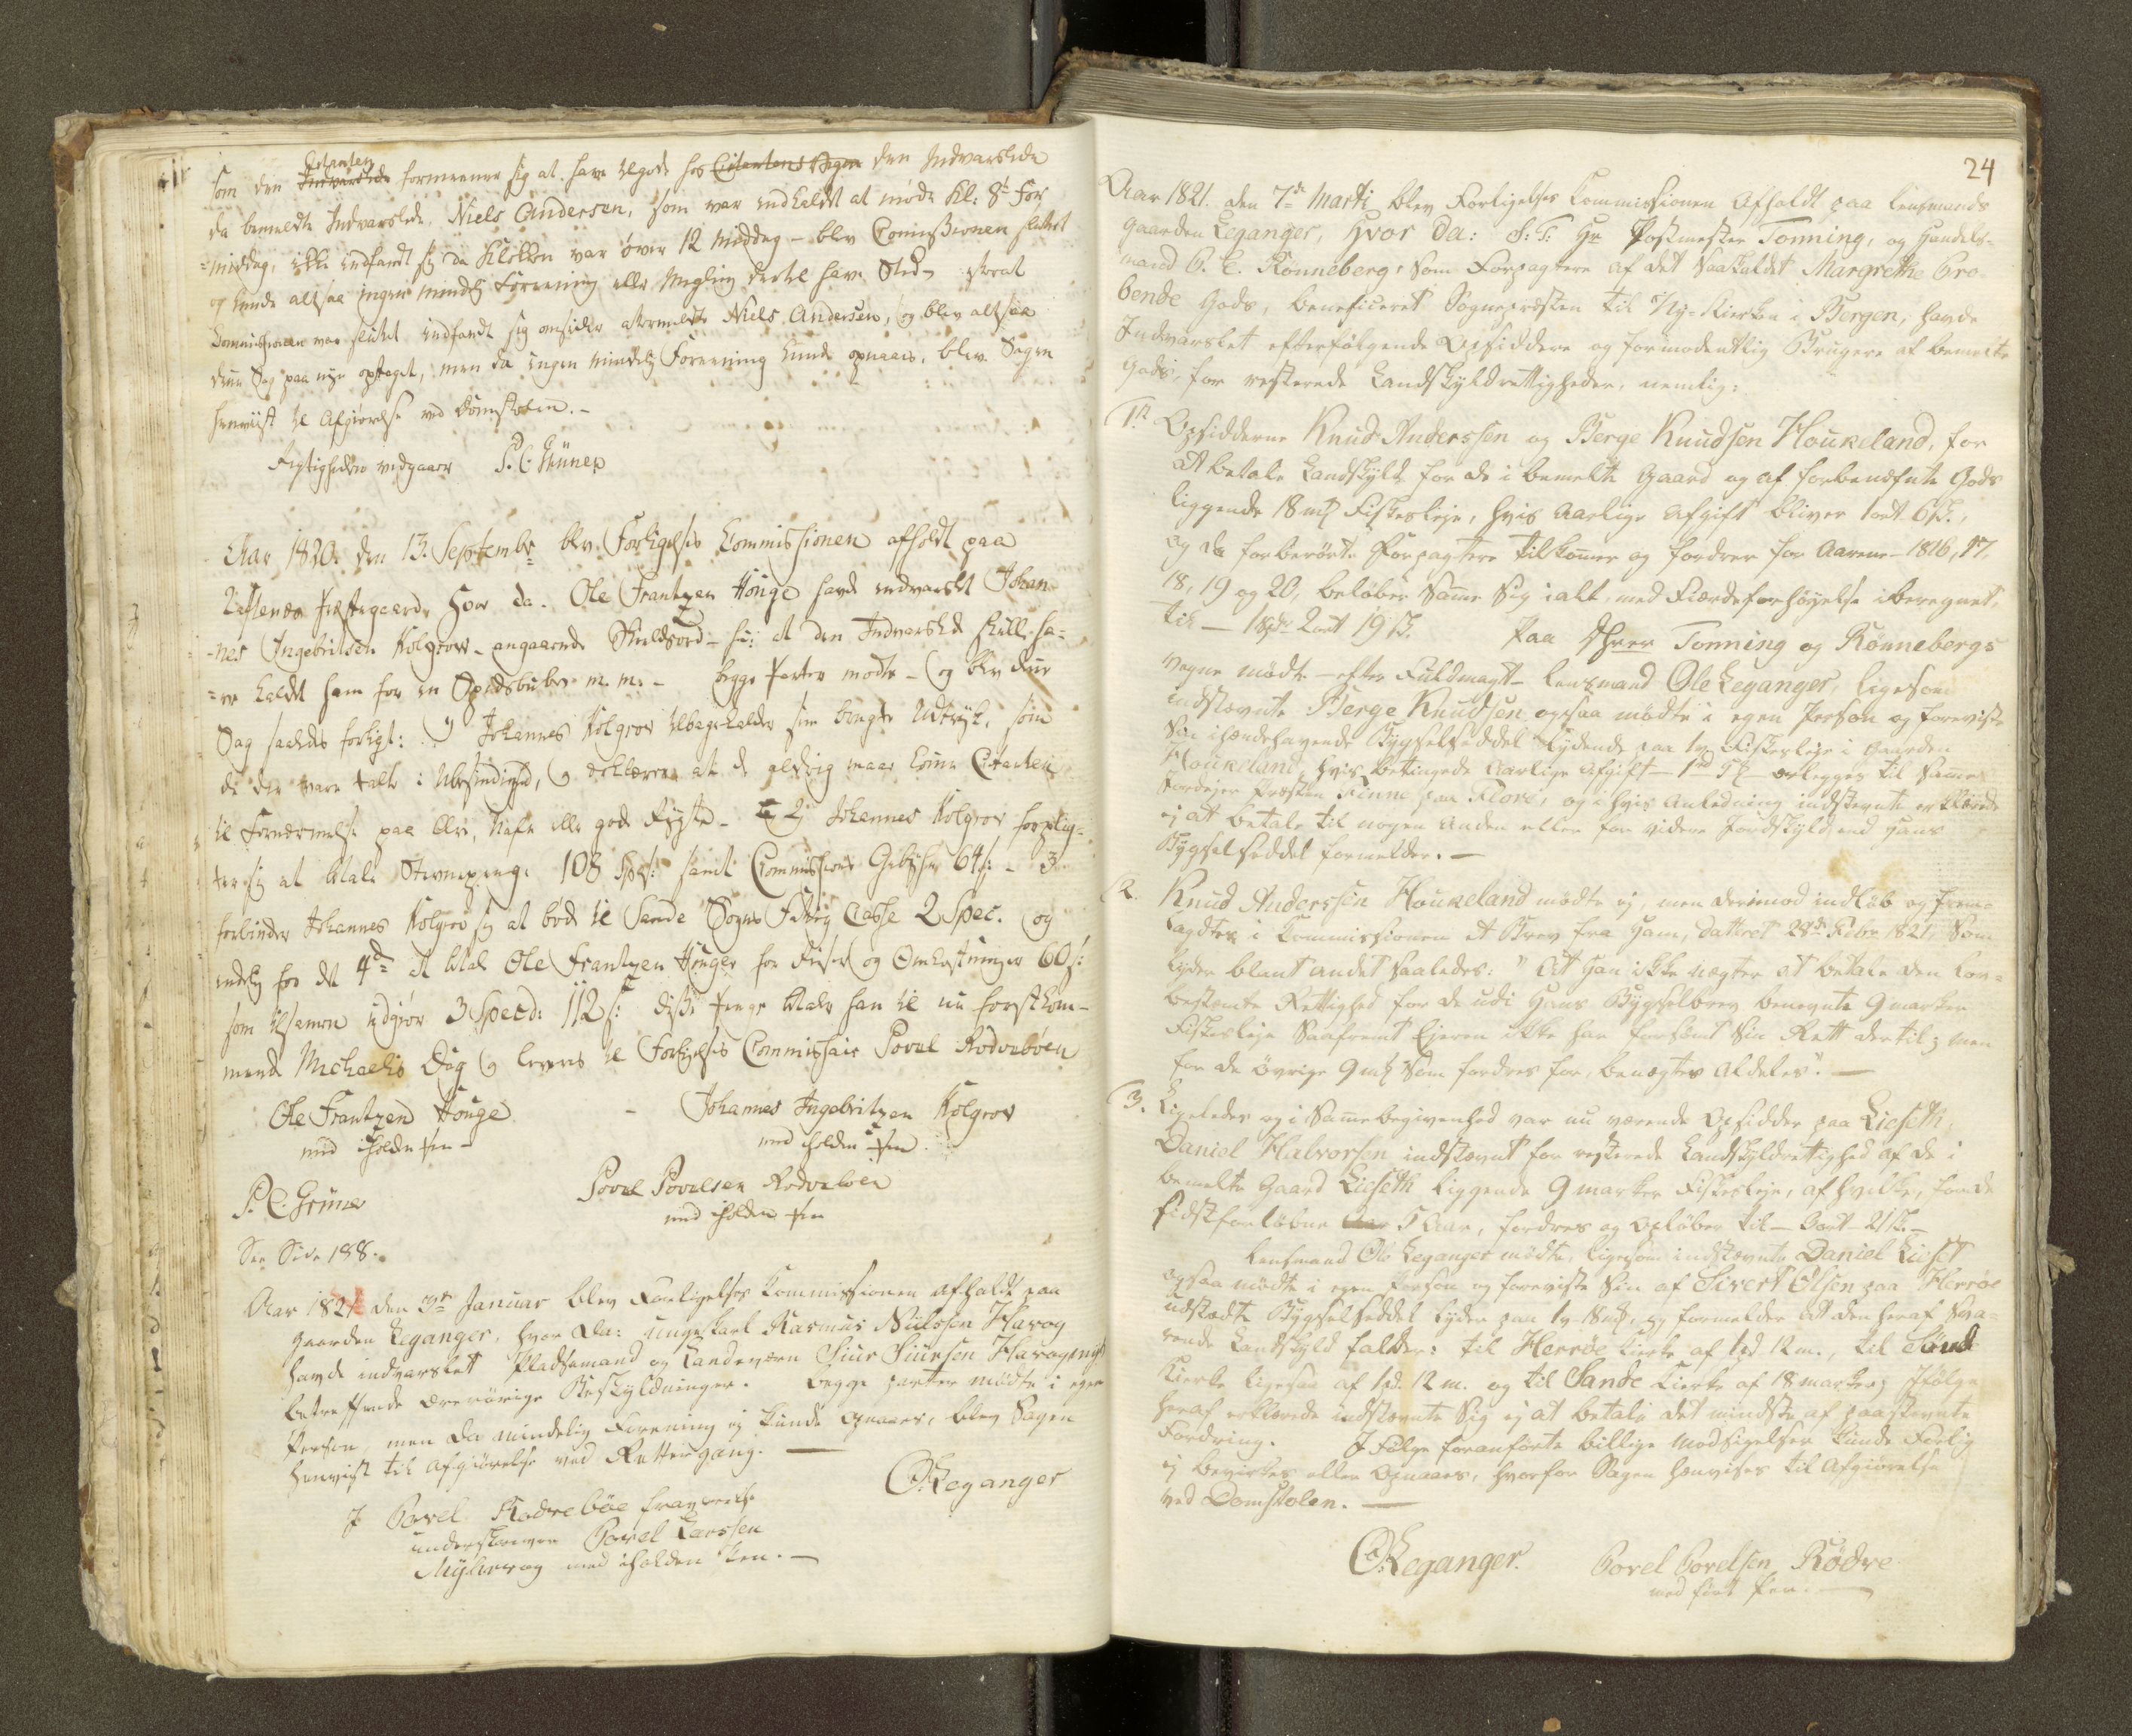 Citanten
som den Indvarslede formeener sig at have tilgode hos Citantens Sagen den Indvarslede
da bemeldte Indvarslede Niels Andersen, som var indkaldt at møde Kl: 8t For
=middag, ikke indfandt sig da Klokken var over 12 Middag - blev Comissionen sluttet
og kunde altsaa ingen mindelig Foreening eller Megling dertil have Sted - strax at
Commissionen var sluttet indfandt sig omsider abemeldte Niels Andersen, og blev altsaa
denne Sag paa nye optaget, men da ingen mindelig Foreening kunde opnaaes, blev Sagen
henviist til Afgiørelse ved Domstolen. -
Rigtigheden vedgaaer P. C. Grüner
Aar 1820 den 13. Septembr blev Forligelses Commissionen afholdt paa
Præstegaard, hvor da Ole Frantzen Houge havde indvarslet Johan-
-nes Ingebritsen Kolgrov - angaaende Skieldsord - at den Indvarslede skulle ha=
=ve kaldt ham for en Spidsbube m. m. - begge Parter mødte - og blev denne
Sag saaledes forligt: 1) Johannes Kolgrov tilbagekalder sine brugte Udtryk, som
de der vare talte i Ubesindighed, og erklærer at de aldrig maae komme Citanten
til Fornærmelse paa Ære, Navn eller gode Rygte - 2) Johannes Kolgrov forplig-
ter sig at betale Stevnepenge 108 s: samt Commissions Gebyhr 64 s: - 3.
forbinder Johannes Kolgrov sig at bøde til Sande Sogns Fattig Casse 2 Spec. og
endelig for det 4de at betale Ole Frantzen Houge for Reiser og Omkostninger 60 s:
som tilsamen udgiør 3 Specd: 112 s: disse Penge betaler han til nu førstkom-
mende Michaelis Dag og leveres til Forligelses Commissair Povel Rødvebøen
Ole Frantzen Houge - Johannes Ingebritzen Kolgrov
med iholden Pen - med iholden Pen
P. C. Grüner Povel Povelsen Rødvebøen
med iholden Pen
See Side 188.
Aar 1821 den 3die Januar blev Forligelses Commissionen afholdt paa
Gaarden Leganger, hvor da: ungekarl Rasmus Nielssen Havog
havde indvarslet Pladsemand og Landeværn Siur Siursen Havog
betreffende ærerørige Beskyldninger. Begge parter mødte i egen
Person, men da mindelig Forening ej kunde opnaaes, blev Sagen
henviist til afgiørelse ved Rettergang. —
I Povel Rødvebøe fraværelse O: Leganger
underskriver Povel Larssen
med iholden Pen. —
24
Aar 1821. den 7de Marti blev Forligelses Commissionen Afholdt paa Lensmands
Gaarden Leganger, hvor da: S: T: Hr Postmester Tonning, og Handels-
mand P. E. Rønneberg, som Forpagtere af det saakaldet Margrethe Pro-
bende Gods, beneficeret Sognepræsten til Ny-Kierken i Bergen, havde
Indvarslet efterfølgende Opsiddere og formodentlig Brugere af bemelte
Gods, for resterede Landskyldrettigheder, nemlig:
1st Opsidderne Knud Anderssen og Berge Knudsen Houkeland, for
at betale Landskyld for de i bemelte Gaard og af forbenæfnte Gods
liggende 18 mk Fiskesleje, hvis Aarlige Afgift bliver 1 ort 6 s.,
og da forberørte Forpagtere tilkomer og fordrer for Aarene - 1816, 17,
18, 19 og 20, beløber Same Sig i alt, med Fierdeforhøyelse iberegnet,
til — 1 spd 2 ort 19 s. Paa Hrer Tonning og Rønnebergs
vegne mødte - efter Fuldmagt - Lensmand Ole Leganger, ligesom
indstevnte Berge Knudsen ogsaa mødte i egen Person og foreviste
sin ihændehavende Bygselseddel lydende paa 1 v Fiskesleje i Gaarden
Houkeland, hvis betingede Aarlige Afgift - erlegges til Same
Jordejer Præsten Finne paa Florø, og i hvis Anledning indstevnte erklærede
ej at betale til nogen Anden eller for videre Jordskyld end hans
Bygselseddel formelder. —
2. Knud Anderssen Houkeland mødte ej, men derimod indløb og frem-
lagdtes i Commissionen et Brev fra ham, datteret 28de Febr. 1821, Som
lyder blant andet saaledes: "At han ikke nægter at betale den Lov-
bestemte Rettighed for de udi hans Bygselbrev benevnte 9 marker
Fiskesleje Saafremt Ejeren ikke har forsømt Sin Rett dertil; men
for de øvrige 9 mk Som fordres for, benægtes Aldeles". —
3. Ligeledes og i Samebegivenhed var nu værende Opsidder paa Lieseth,
Daniel Halvorsen indstevnt for resterede Landskyldrettighed af de i
bemelte Gaard Lieseth liggende 9 marker Fiskesleje, af hvilke, for de
sidstforløbne Aar 5 Aar, fordres og opløber til - 3 ort - 21 s. -
Lensmand Ole Leganger mødte, ligesom indstevnte Daniel Lieset
ogsaa mødte i egen Person og foreviste Sin af Sivert Olsen paa Herrøe
udstædte Bygselseddel lyder paa 1 v 18 mk, og formelder at den heraf Sva-
rende Landskyld falder: til Herrøe Kierke af 1 pd. 12 m., til
Kierke ligesaa af 1 pd. 12 m. og til Sande Kierke af 18 marker; Ifølge
heraf erklærede indstevnte Sig ej at betale det mindste af paastevnte
Fordring. I Følge foranførte billige Modsigelser kunde Forlig
ej bevirkes eller opnaaes, hvorfor Sagen henvises til Afgiørelse
ved Domstolen. —
O: Leganger. Povel Povelsen Rødve
med ført Pen. —